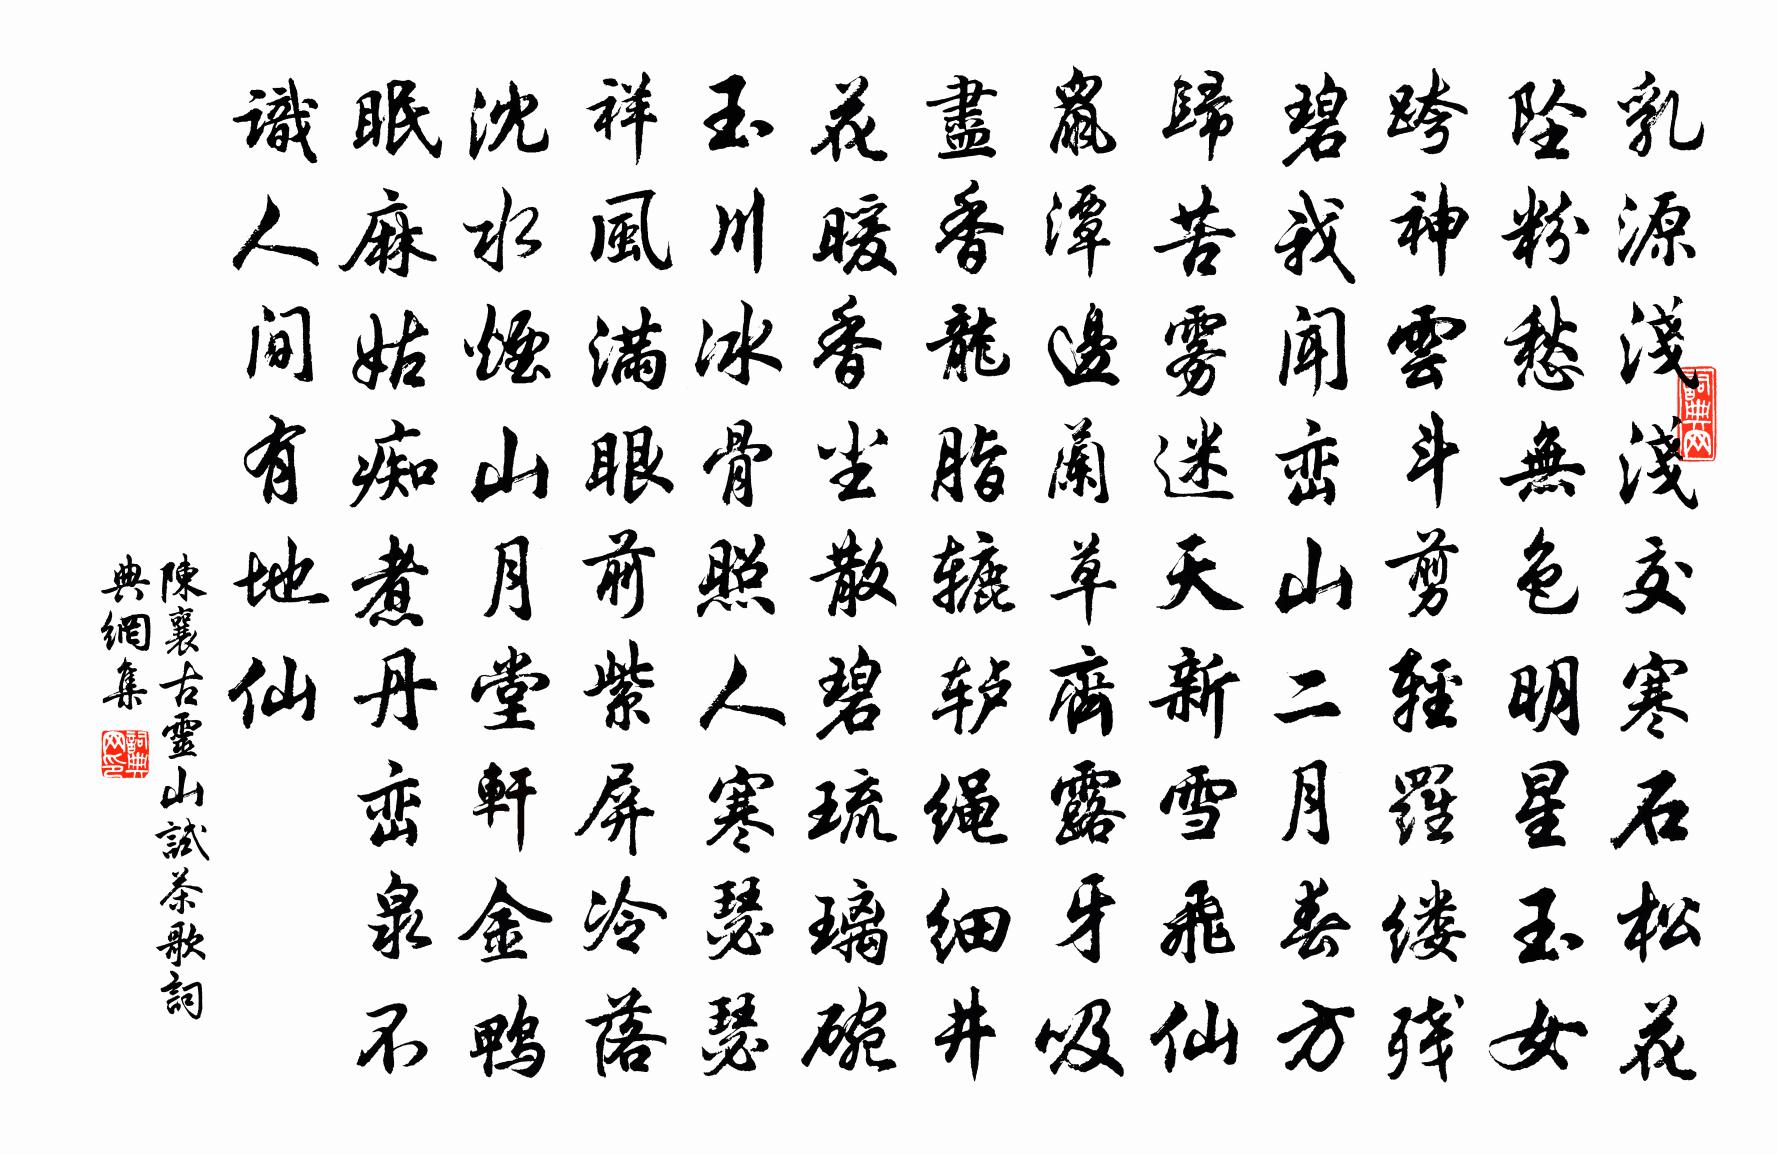 乳源淺淺交寒石松花
坠粉愁無色明星玉女
跨神雲斗剪輕羅缕残
碧我闻峦山二月春方
歸苦雾迷天新雪飛仙
鼠潭邊蘭草齊露牙吸
盡香龍脂辘轳绳细井
花暖香尘散碧琉璃碗
玉川冰骨照人寒瑟瑟
祥風满眼前紫屏冷落
沈水煙山月堂軒金鴨
眠麻姑痴煮丹峦泉不
識人间有地仙
陳襄古靈山試茶歌詞
典網集
詞典网
詞典网印